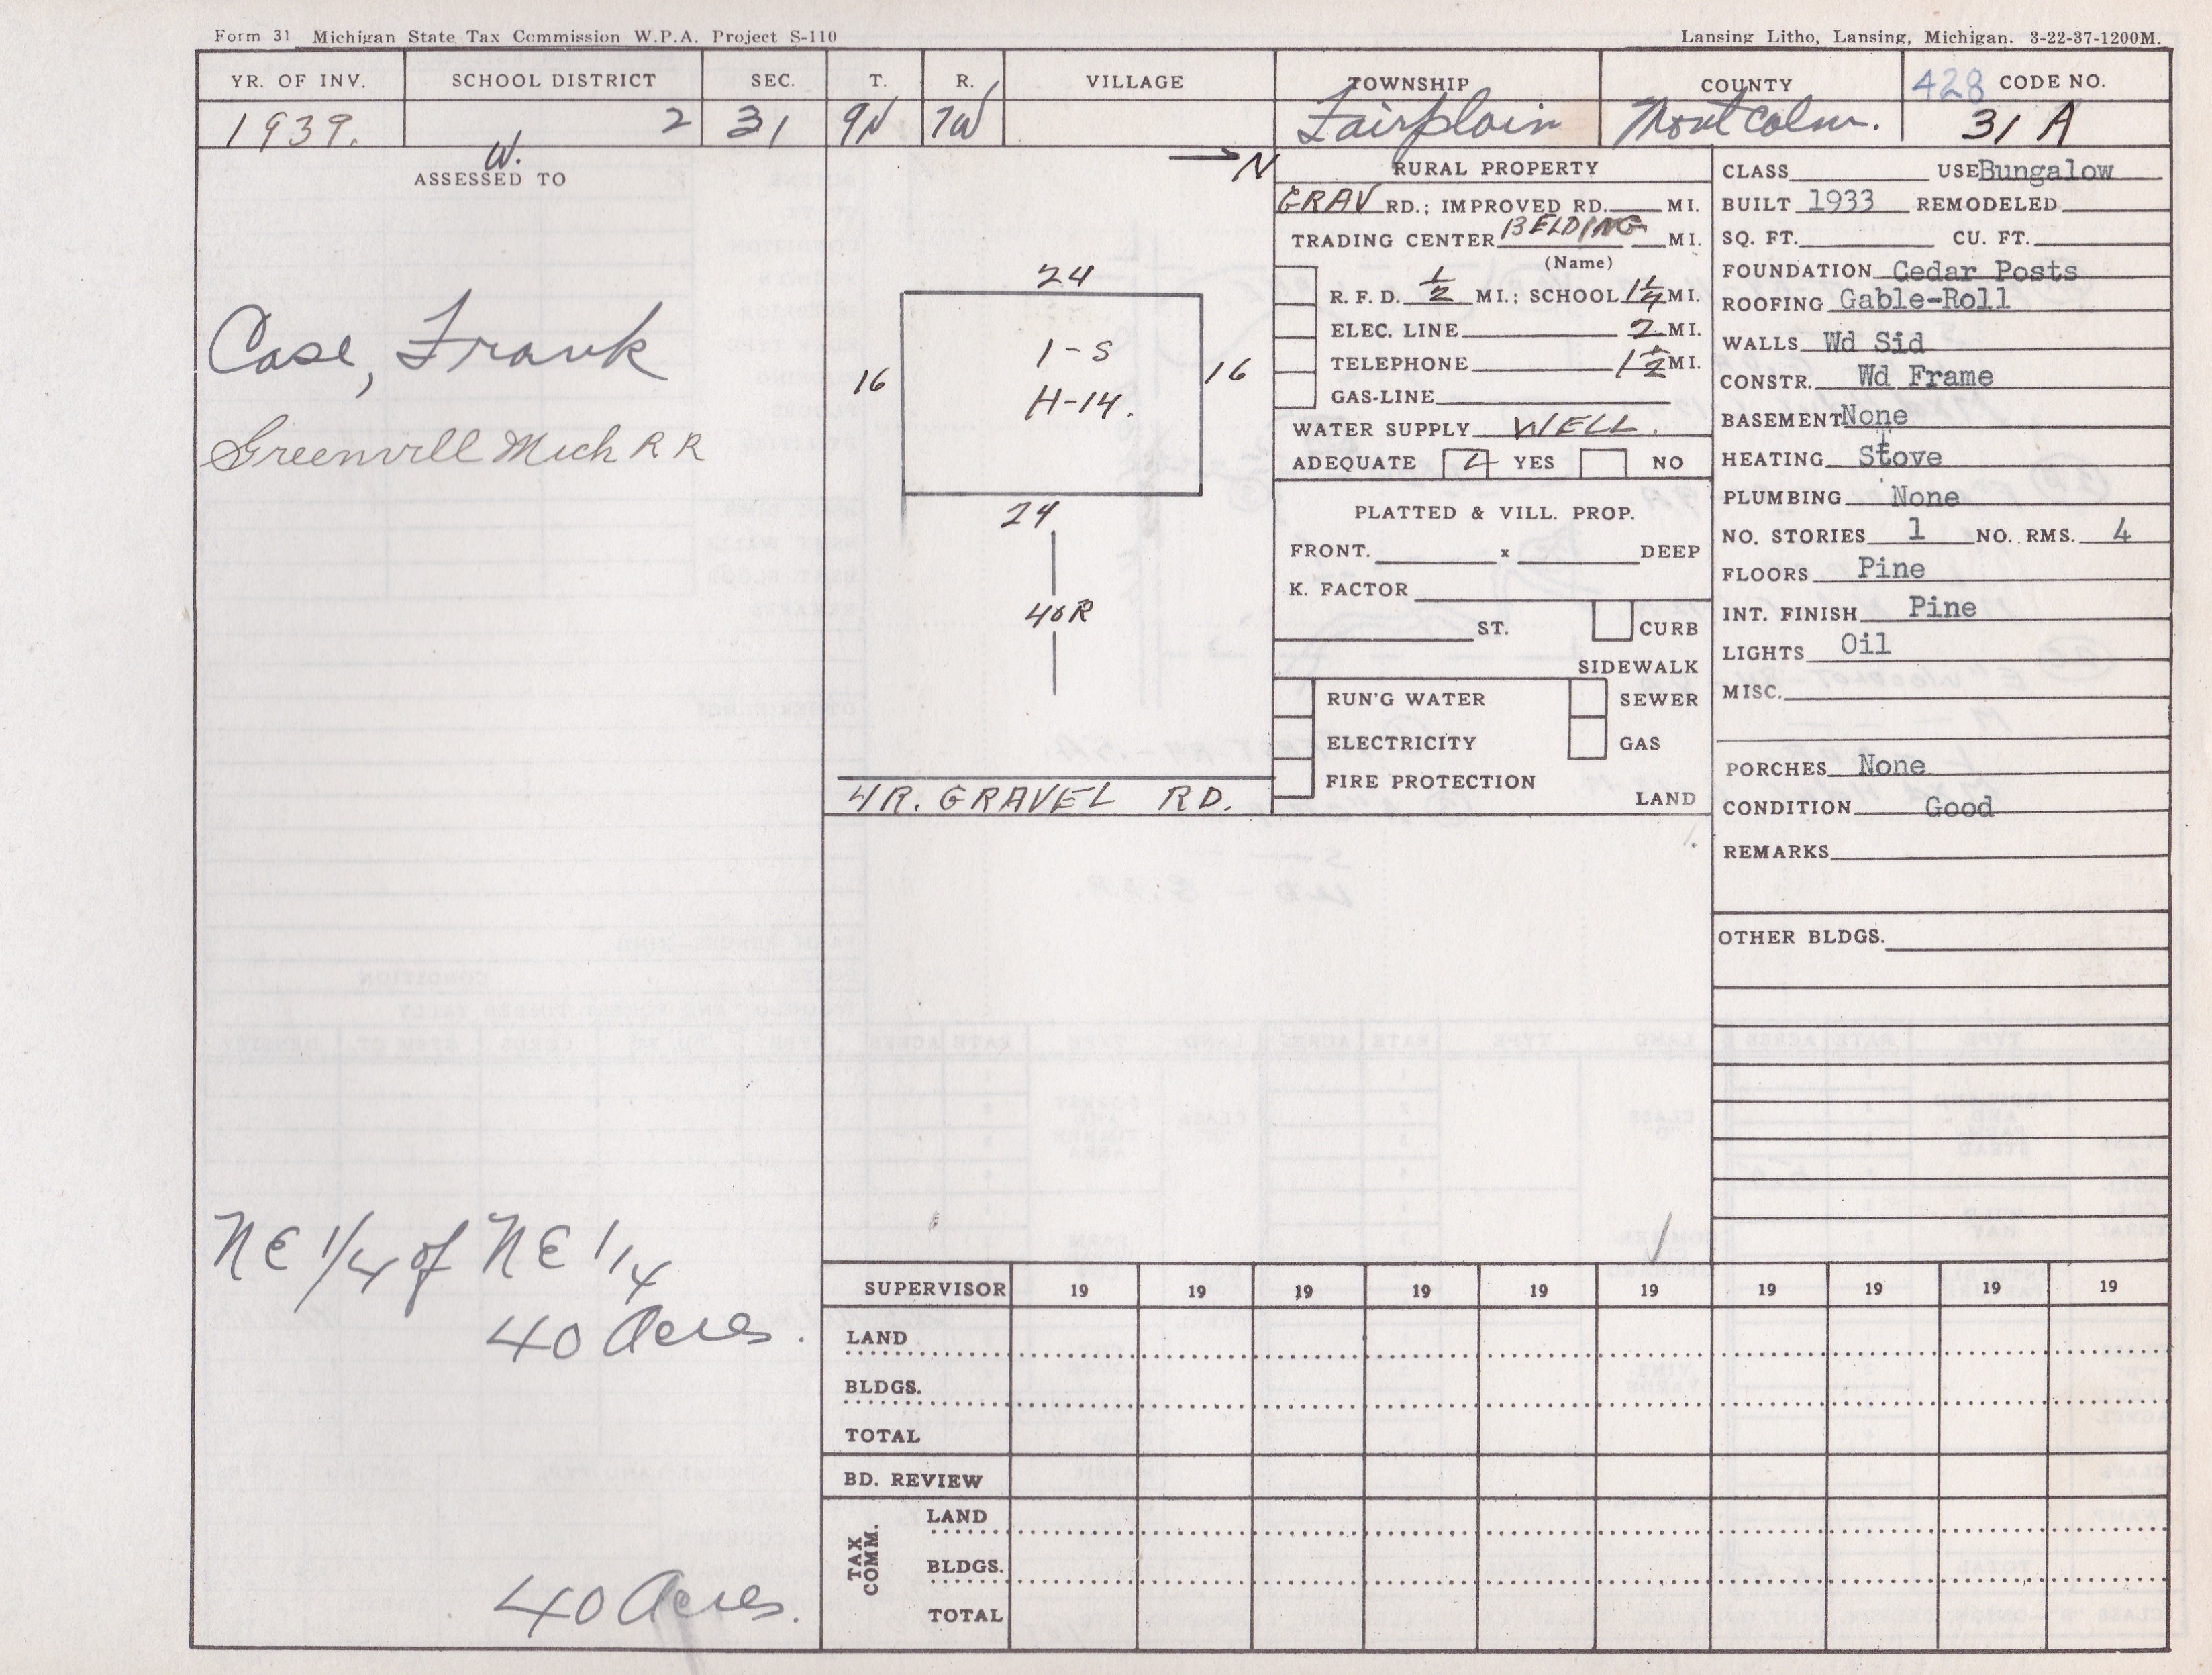 Form 31 Michigan State Tax Commission W.P.A. Project S-110
Lansing Litho, Lansing, Michigan. 3-22-37-1200M.
YR. OF INV. SCHOOL DISTRICT SEC. T. R. VILLAGE TOWNSHIP COUNTY 428 CODE NO.
1939. 2 31 9N 7W Fairplain Montcalm. 31 A
W.
ASSESSED TO
Case, Frank
Greenvill Mich R R
NE 1/4 of NE 1/4
40 Acres.
40 Acres.
N
24
16
1-S
H-14.
16
24
40R
4R. GRAVEL RD.
RURAL PROPERTY
GRAV RD.; IMPROVED RD. MI.
TRADING CENTER BELDING MI.
(Name)
R. F. D. 1/2 MI.; SCHOOL 1 1/4 MI.
ELEC. LINE 2 MI.
TELEPHONE 1 1/2 MI.
GAS-LINE
WATER SUPPLY WELL.
ADEQUATE YES NO
PLATTED & VILL. PROP.
FRONT. x DEEP
K. FACTOR
ST. CURB
SIDEWALK
RUN'G WATER SEWER
ELECTRICITY GAS
FIRE PROTECTION
LAND
CLASS USE Bungalow
BUILT 1933 REMODELED
SQ. FT. CU. FT.
FOUNDATION Cedar Posts
ROOFING Gable-Roll
WALLS Wd Sid
CONSTR. Wd Frame
BASEMENT None
HEATING Stove
PLUMBING None
NO. STORIES 1 NO. RMS. 4
FLOORS Pine
INT. FINISH Pine
LIGHTS Oil
MISC.
PORCHES None
CONDITION Good
REMARKS
OTHER BLDGS.
SUPERVISOR 19 19 19 19 19 19 19 19 19 19
LAND
BLDGS.
TOTAL
BD. REVIEW
TAX COMM.
LAND
BLDGS.
TOTAL